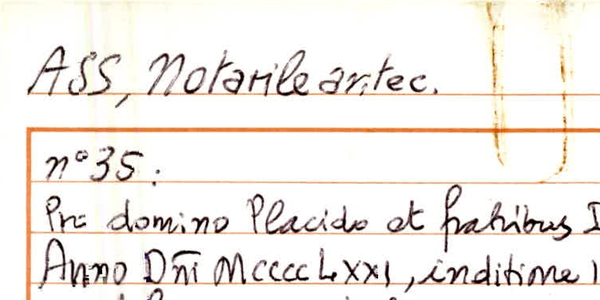 ASS, Notarile antec.
n° 35:
Pro domino Placido et fratribus
Anno Dñi MCCCCLXXI, inditione